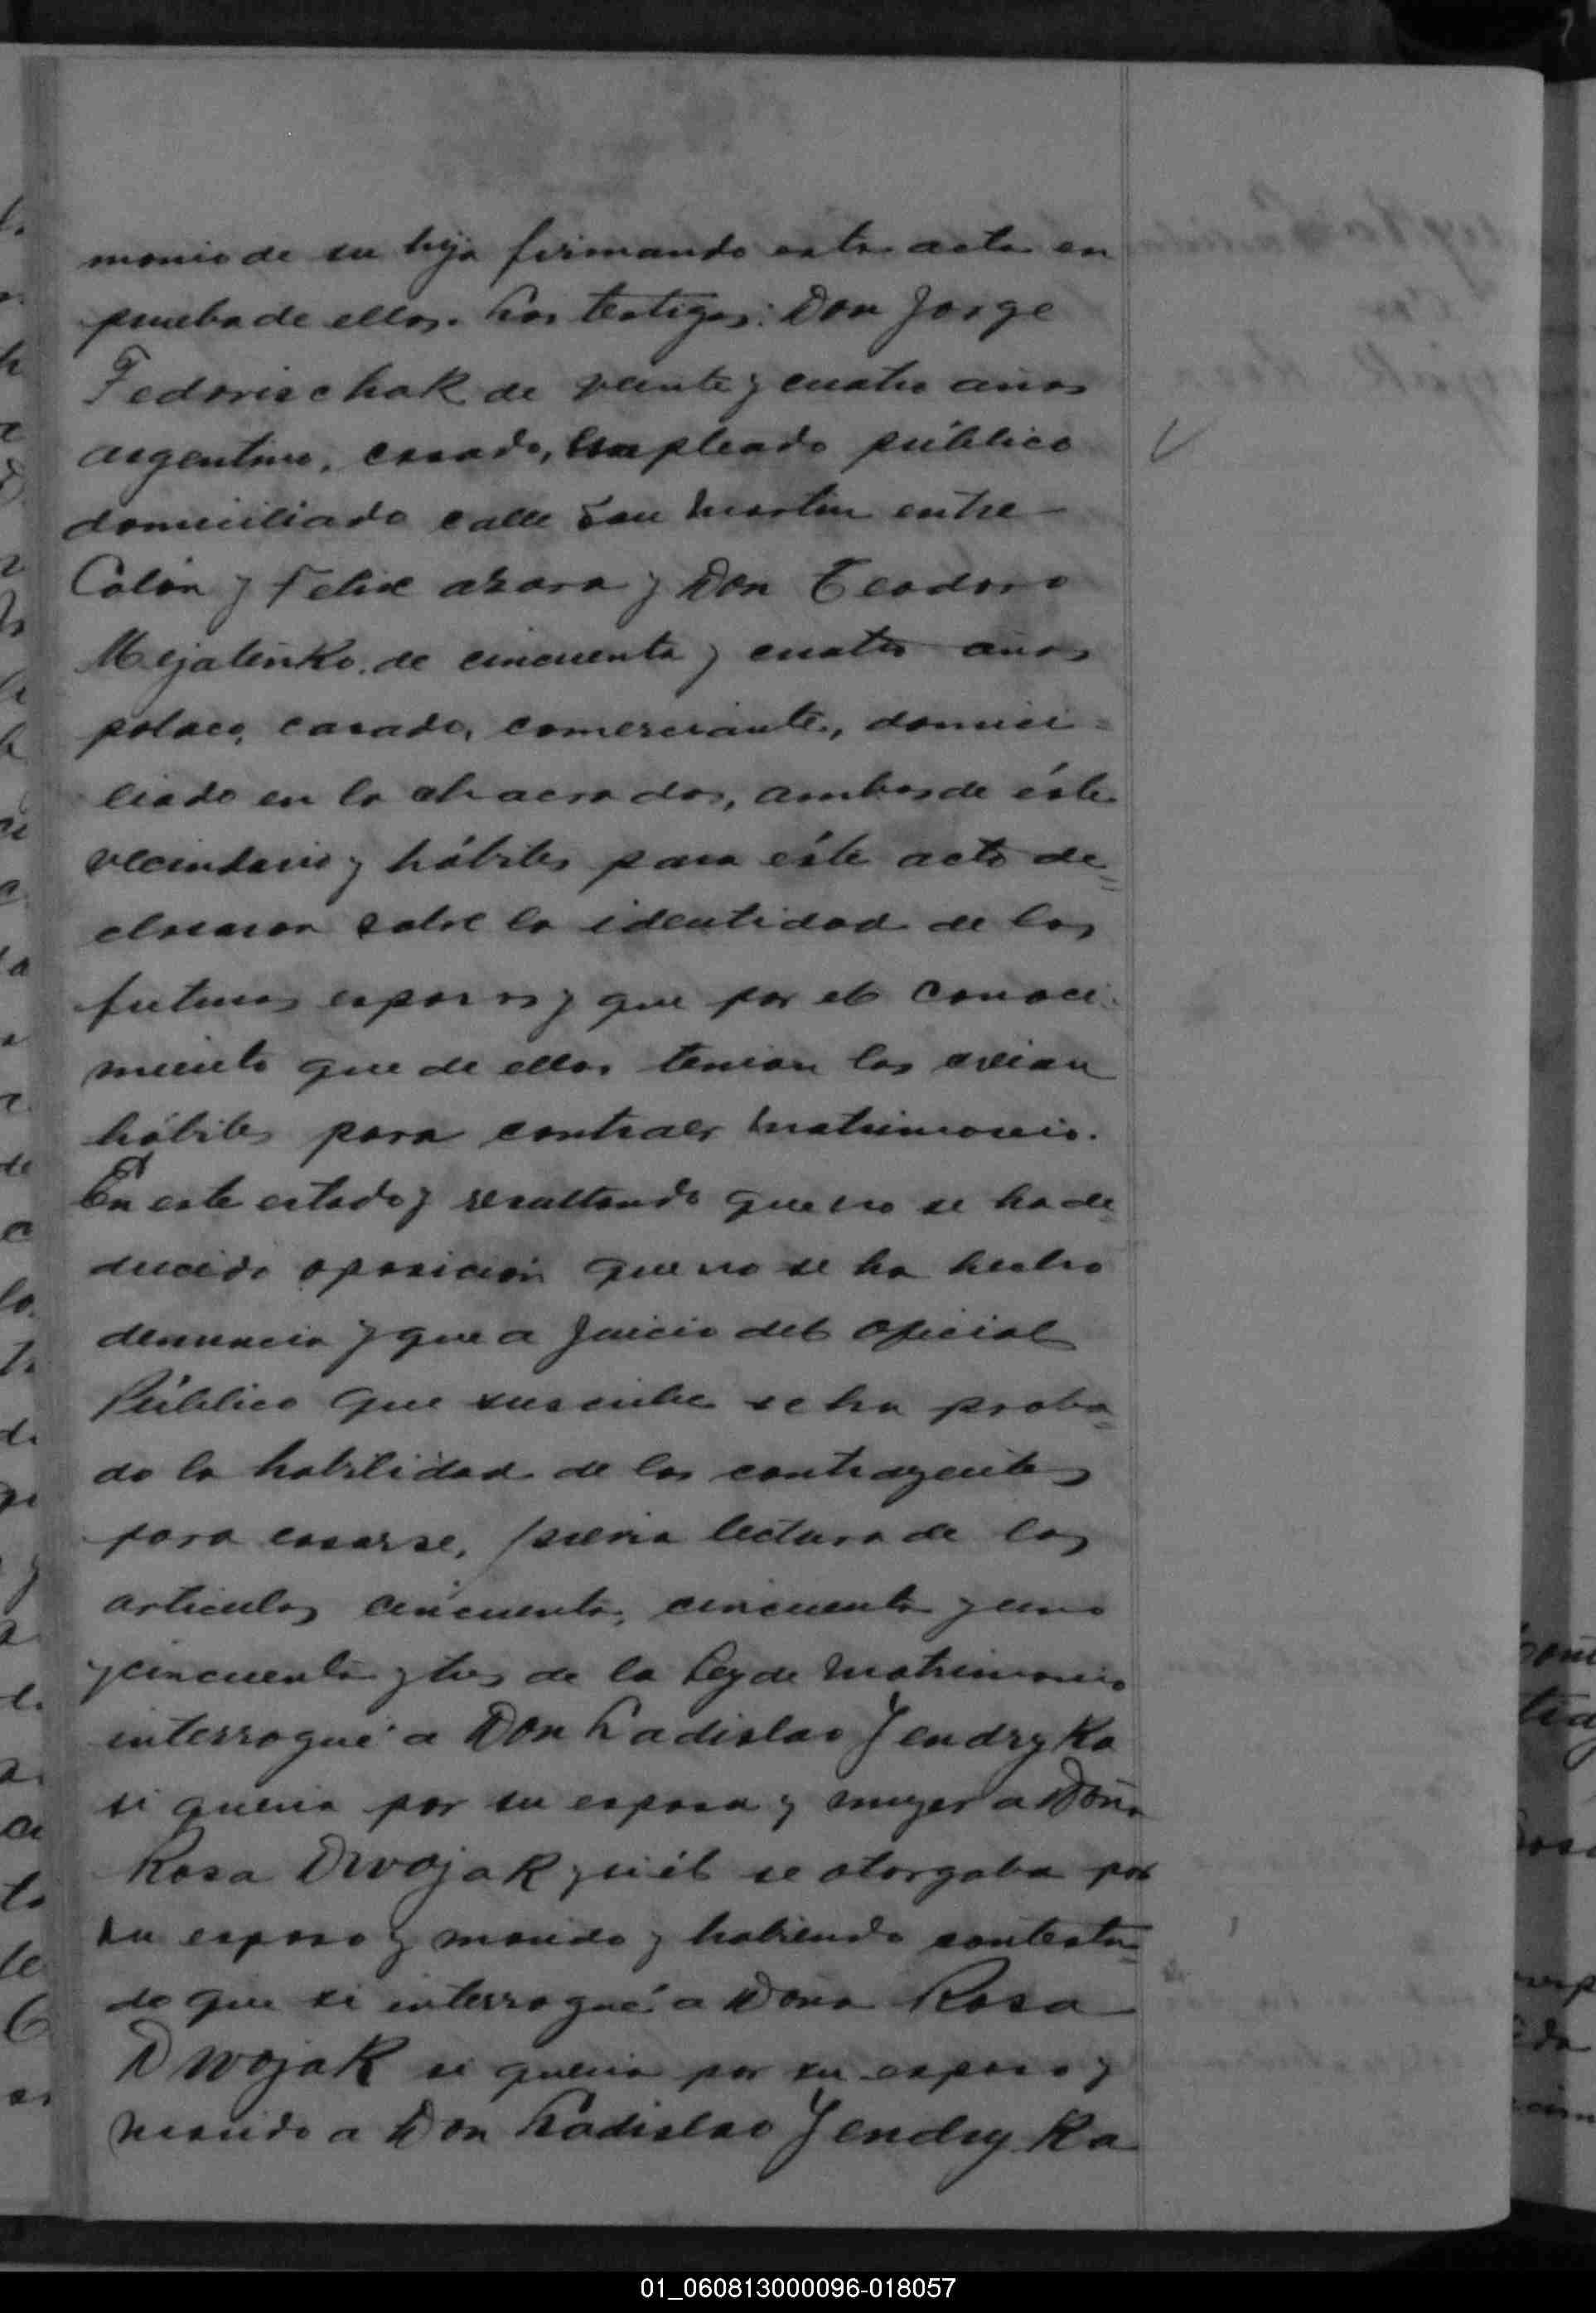 monio de su hija firmando esta acta en
prueba de ellos. Los testigos: Don Jorge
Fedorischak de veinte y cuatro años
argentino, casado, Empleado público
domiciliado calle San Martin entre
Colón y Felix Azara y Don Teodoro
Mejaleñko. de cincuenta y cuatro años
polaco, casado, comerciante, domici=
liado en la chacra dos, ambos de éste
vecindario y hábiles para éste acto de=
clararon sobre la identidad de los
futuros esposos y que por el conoci-
miento que de ellos tenian los creian
hábiles para contraer matrimonio.
En este estado y resultando que no se ha de=
ducido oposición que no se ha hecho
denuncia y que a juicio del Oficial
Público que suscribe se ha proba=
do la habilidad de los contrayentes
para casarse, previa lectura de los
articulos cincuenta, cincuenta y uno
y cincuenta y tres de la Ley de Matrimonio
interrogué a Don Ladislao Jendryka
si queria por su esposa y mujer a Doña
Rosa Dwojak y si él se otorgaba por
su esposo y marido y habiendo contesta=
do que si interrogué a Doña Rosa
Dwojak si queria por su esposo y
marido a Don Ladislao Jendryka
01_060813000096-018057